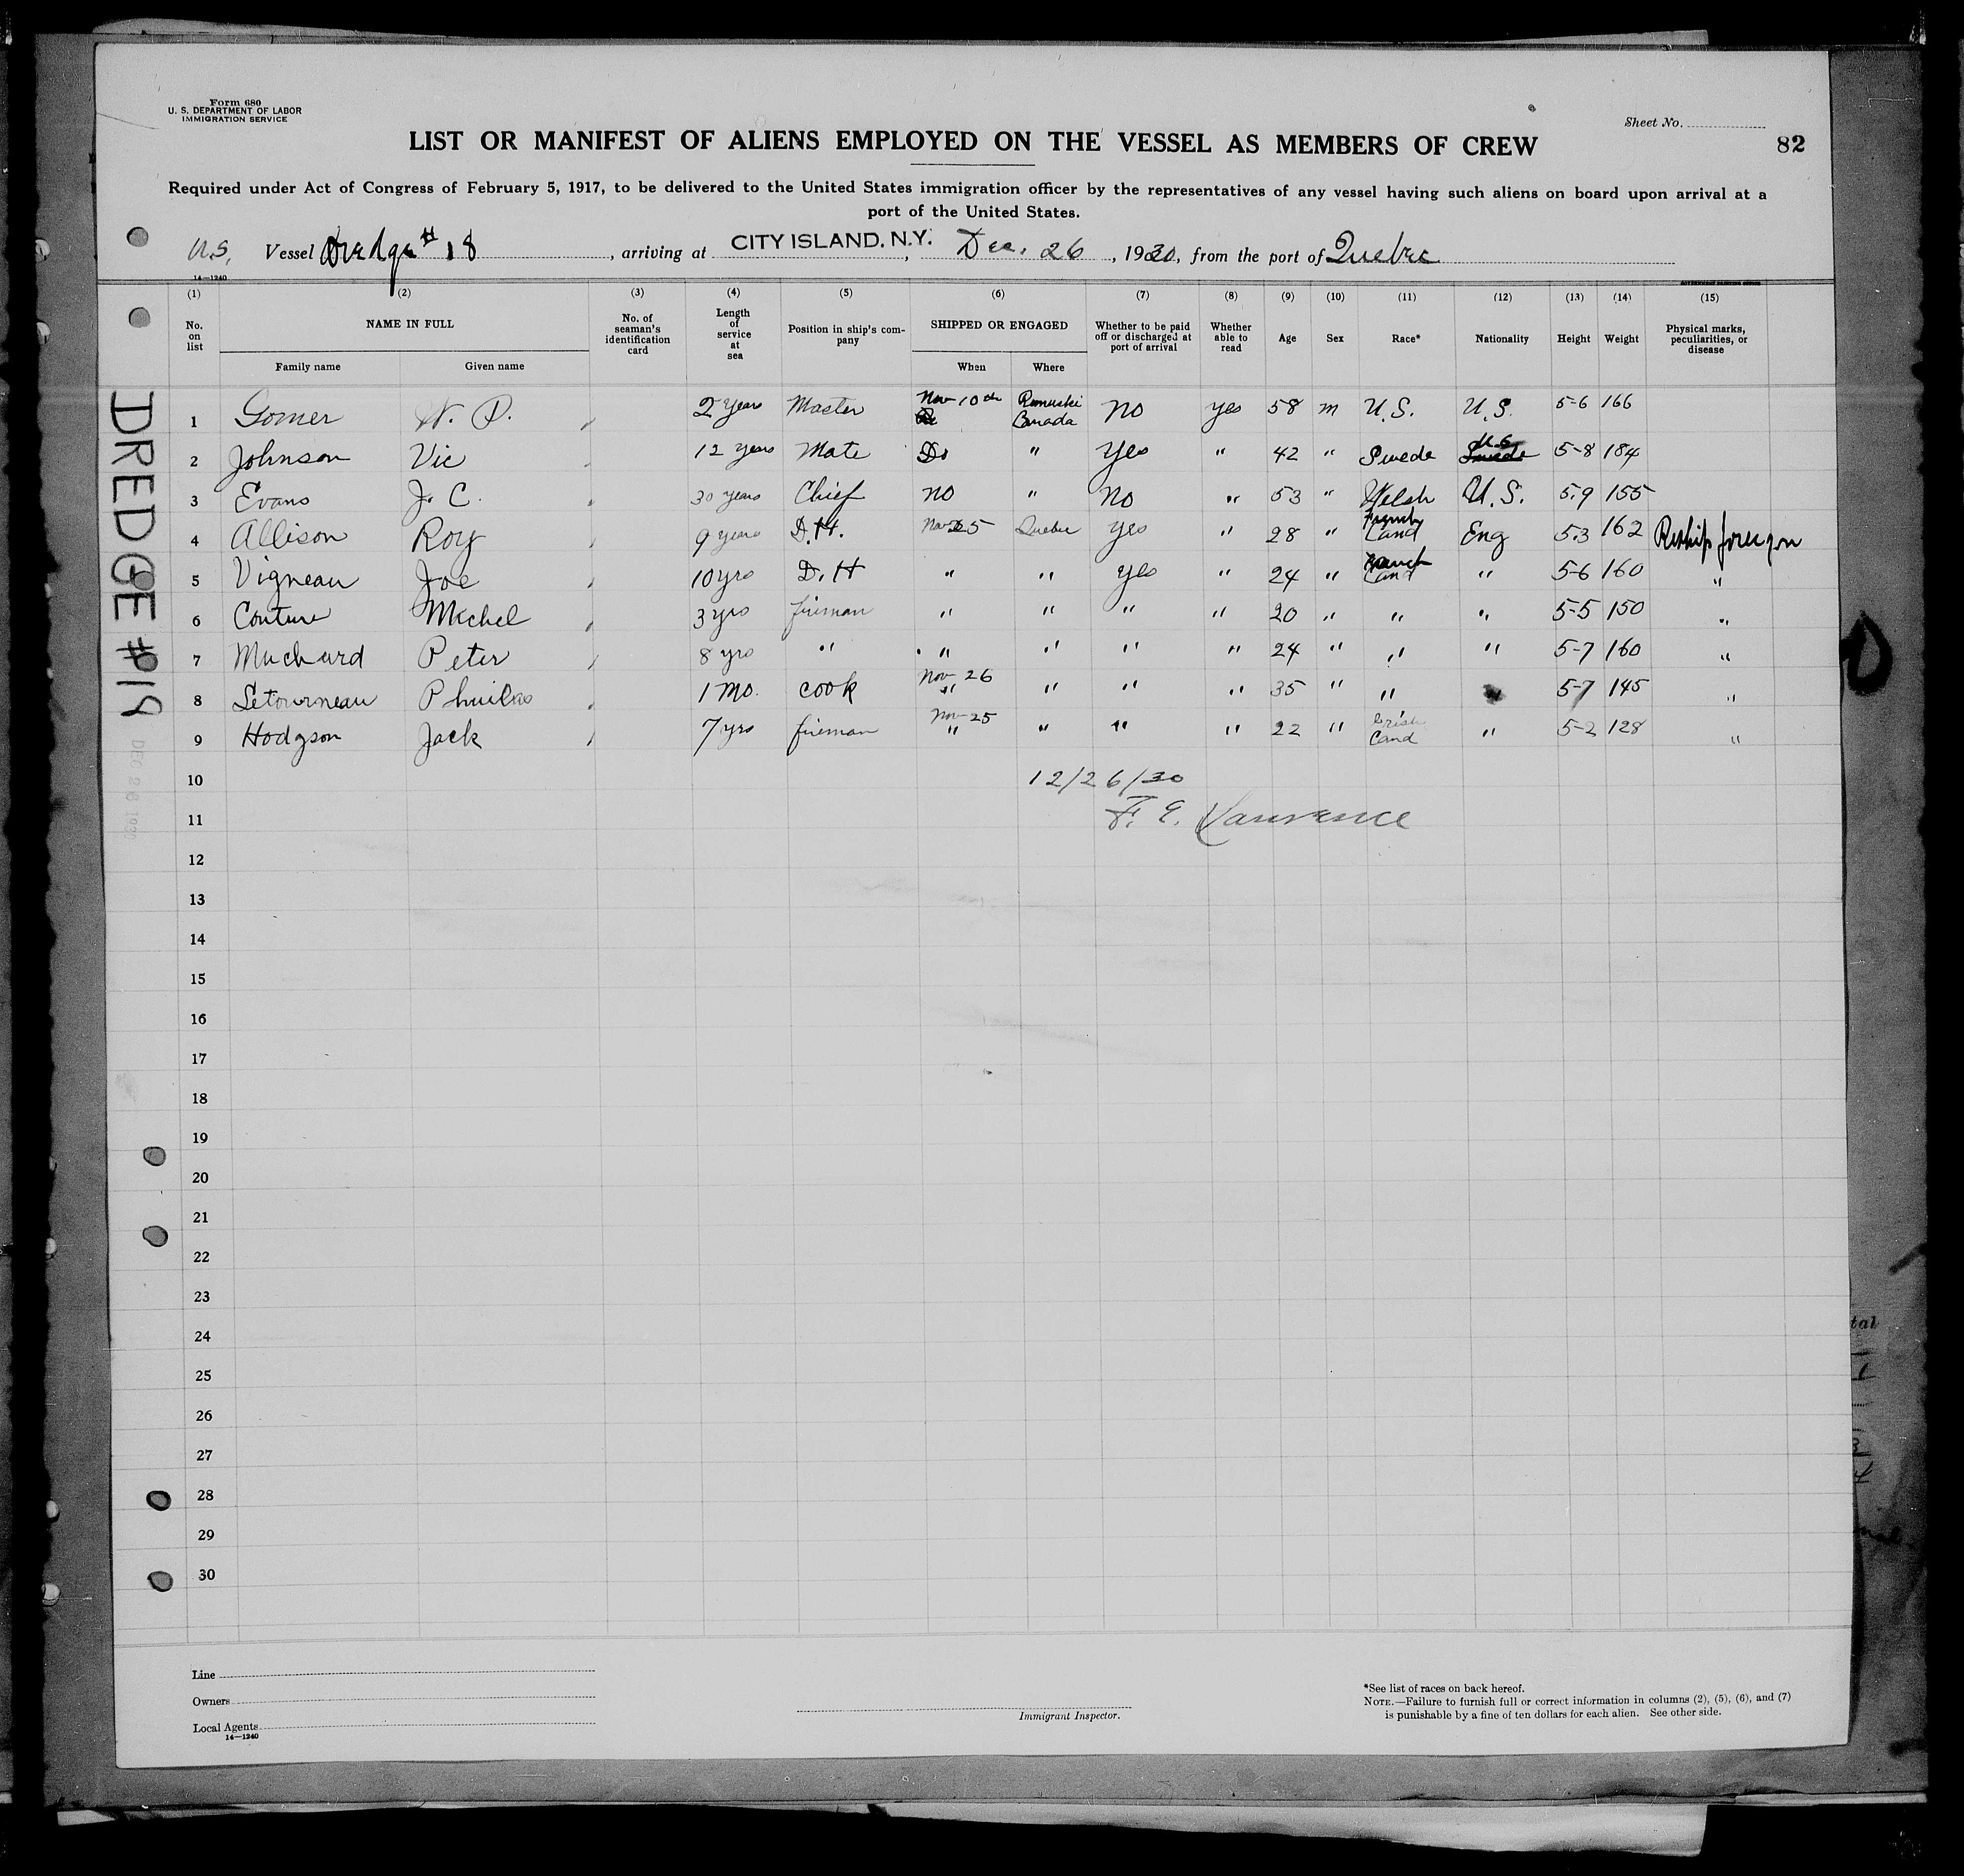 Form 680
U. S. DEPARTMENT OF LABOR
IMMIGRATION SERVICE
Sheet No.
LIST OR MANIFEST OF ALIENS EMPLOYED ON THE VESSEL AS MEMBERS OF CREW
82
Required under Act of Congress of February 5, 1917, to be delivered to the United States immigration officer by the representatives of any vessel having such aliens on board upon arrival at a
port of the United States.
U.S. Vessel Dredge # 18, arriving at CITY ISLAND, N.Y., Dec. 26, 1930, from the port of Quebec
14—1240
(1) (2) (3) (4) (5) (6) (7) (8) (9) (10) (11) (12) (13) (14) (15)
No. on list NAME IN FULL Family name Given name No. of seaman's identification card Length of service at sea Position in ship's company SHIPPED OR ENGAGED When Where Whether to be paid off or discharged at port of arrival Whether able to read Age Sex Race* Nationality Height Weight Physical marks, peculiarities, or disease
1 Gomer W. P. 2 years Master Nov 10th Rimuski Canada no yes 58 m U.S. U.S. 5-6 166
2 Johnson Vic 12 years Mate Do " Yes " 42 " Swede U.S. 5-8 184
3 Evans J. C. 30 years Chief no " no " 53 " Welsh U.S. 5.9 155
4 Allison Roy 9 years D.H. Nov 25 Quebec yes " 28 " French Cand Eng 5.3 162 Reship foreign
5 Vigneau Joe 10 yrs D.H " " yes " 24 " French Cand " 5-6 160 "
6 Couture Michel 3 yrs fireman " " " " 20 " " " 5-5 150 "
7 Muchard Peter 8 yrs " " " " " 24 " " " 5-7 160 "
8 Letourneau Phuilas 1 mo. cook Nov 26 " " " " 35 " " 5-7 145 "
9 Hodgson Jack 7 yrs fireman Nov 25 " " " " 22 " Irish Cand " 5-2 128 "
10 12/26/30
11 F. E. Lawrence
12
13
14
15
16
17
18
19
20
21
22
23
24
25
26
27
28
29
30
DREDGE #19
DEC 26 1930
Line
Owners
Local Agents
14—1240
Immigrant Inspector.
*See list of races on back hereof.
NOTE.—Failure to furnish full or correct information in columns (2), (5), (6), and (7)
is punishable by a fine of ten dollars for each alien. See other side.